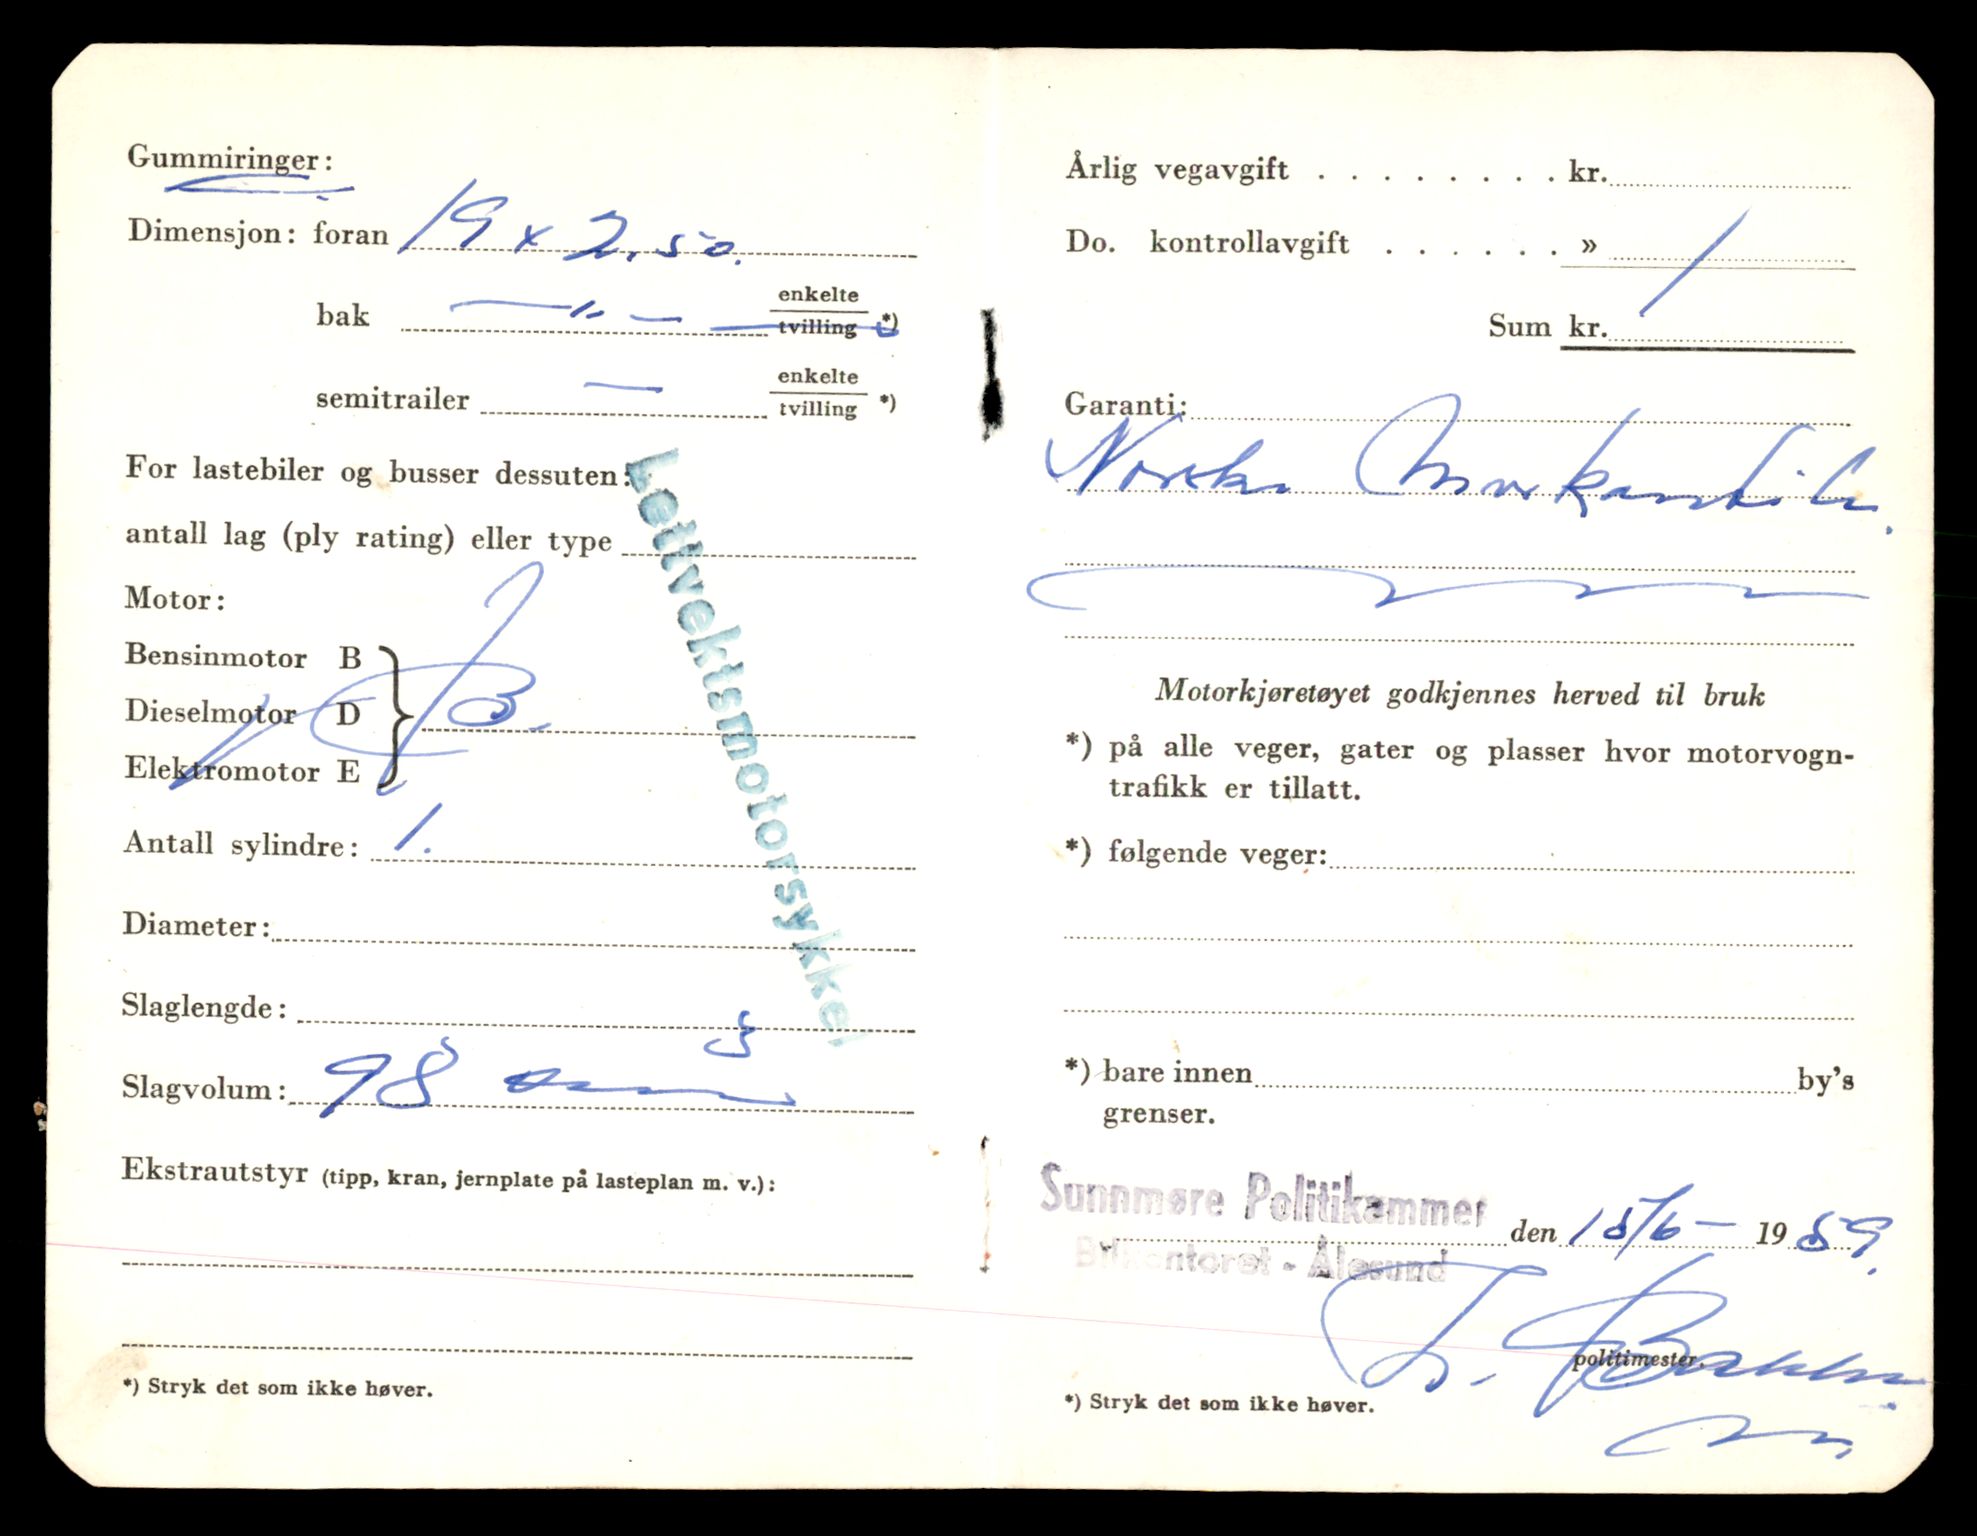 Gummiringer:
Dimensjon: foran 19 x 2.50.
bak — " — enkelte
tvilling *)
semitrailer — enkelte
tvilling *)
For lastebiler og busser dessuten:
antall lag (ply rating) eller type
Motor:
Bensinmotor B
Dieselmotor D B.
Elektromotor E
Antall sylindre: 1.
Diameter:
Slaglengde:
Slagvolum: 98 cm3
Ekstrautstyr (tipp, kran, jernplate på lasteplan m. v.):
*) Stryk det som ikke høver.
Lettvektsmotorsykkel
Årlig vegavgift . . . . . . . . kr.
Do. kontrollavgift . . . . . . »
Sum kr.
Garanti:
Norske
Motorkjøretøyet godkjennes herved til bruk
*) på alle veger, gater og plasser hvor motorvogn-
trafikk er tillatt.
*) følgende veger:
*) bare innen by's
grenser.
Sunnmøre Politikammer
den 15/6 - 1959.
Bilkontoret - Ålesund
politimester.
*) Stryk det som ikke høver.